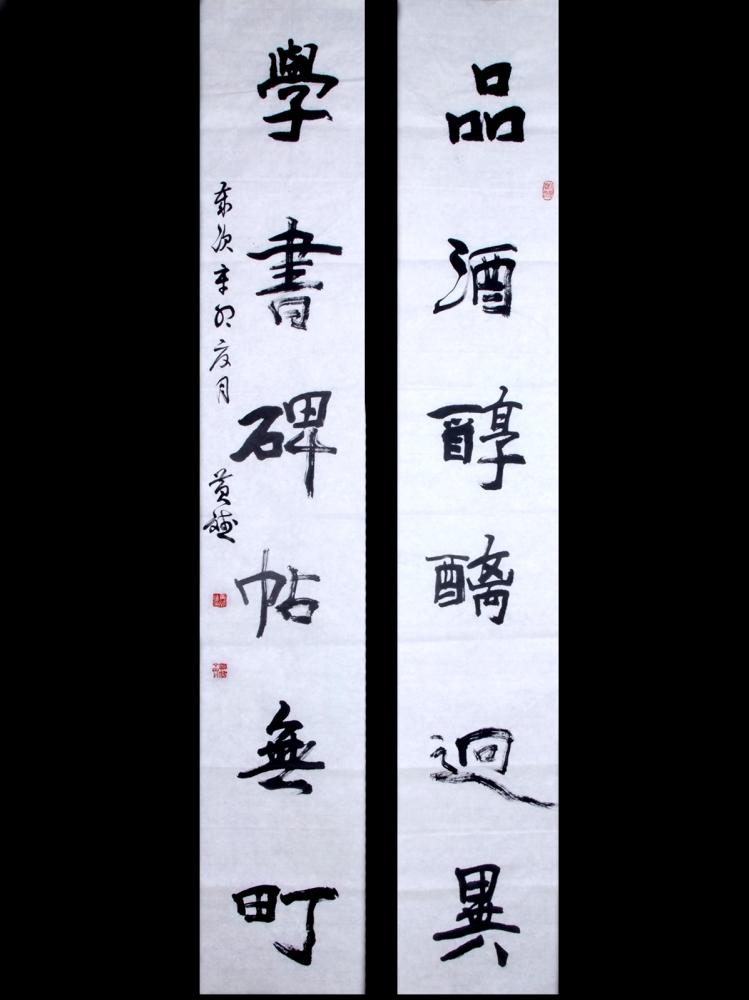 品酒醇醨迥異
學書碑帖無町
歲次辛卯夏月
黃斌